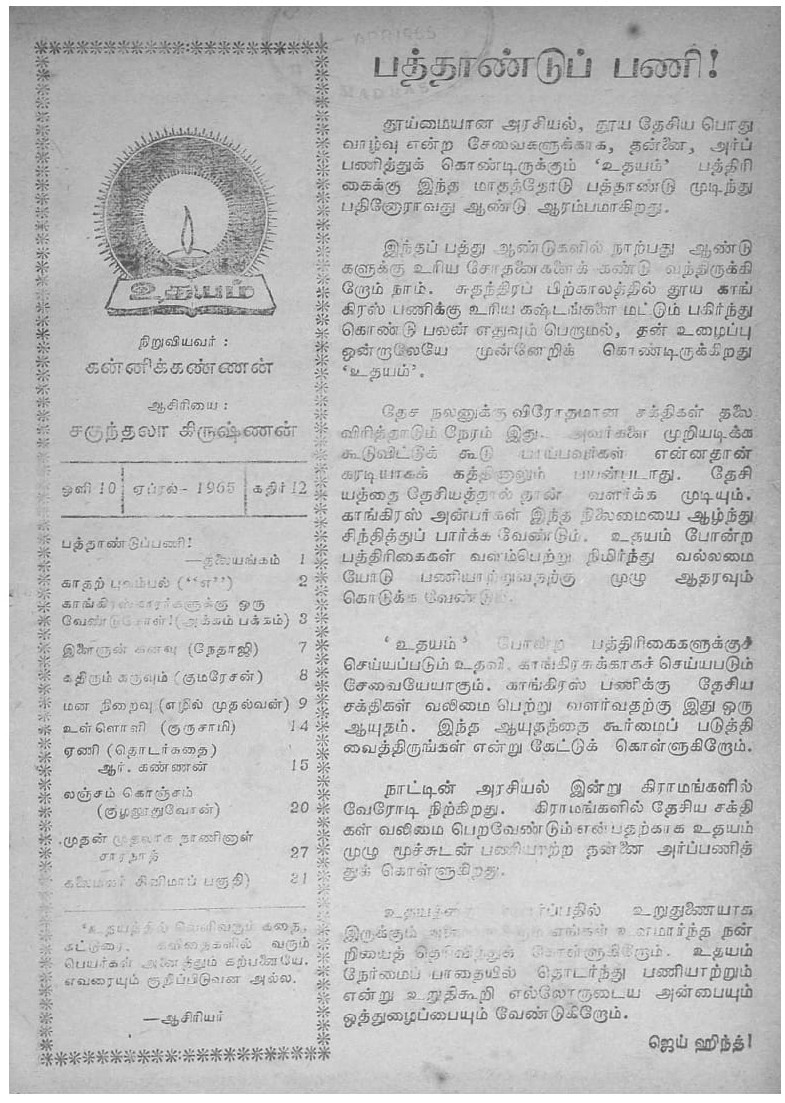 உதயம்
நிறுவியவர் :
கன்னிக்கண்ணன்
ஆசிரியை :
சகுந்தலா கிருஷ்ணன்
ஒளி 10 ஏப்ரல் - 1965 கதிர் 12
பத்தாண்டுப்பணி!
—தலையங்கம் 1
காதற் புலம்பல் (“எ”) 2
காங்கிரஸ்காரர்களுக்கு ஒரு
வேண்டுகோள்!(அக்கம் பக்கம்) 3
இளைஞன் கனவு (நேதாஜி) 7
கதிரும் கருவும் (குமரேசன்) 8
மன நிறைவு (எழில் முதல்வன்) 9
உள்ளொளி (குருசாமி) 14
ஏணி (தொடர்கதை)
ஆர். கண்ணன் 15
லஞ்சம் கொஞ்சம்
(குழலூதுவோன்) 20
முதன் முதலாக நாணினாள்
சாரநாத் 27
கலைமலர் சினிமாப் பகுதி) 31
‘உதயத்தில் வெளிவரும் கதை,
கட்டுரை, கவிதைகளில் வரும்
பெயர்கள் அனைத்தும் கற்பனையே.
எவரையும் குறிப்பிடுவன அல்ல.
—ஆசிரியர்
பத்தாண்டுப் பணி!
தூய்மையான அரசியல், தூய தேசிய பொது
வாழ்வு என்ற சேவைகளுக்காக, தன்னை, அர்ப்
பணித்துக் கொண்டிருக்கும் ‘உதயம்’ பத்திரி
கைக்கு இந்த மாதத்தோடு பத்தாண்டு முடிந்து
பதினோராவது ஆண்டு ஆரம்பமாகிறது.
இந்தப் பத்து ஆண்டுகளில் நாற்பது ஆண்டு
களுக்கு உரிய சோதனைகளைக் கண்டு வந்திருக்கி
றோம் நாம். சுதந்திரப் பிற்காலத்தில் தூய காங்
கிரஸ் பணிக்கு உரிய கஷ்டங்களை மட்டும் பகிர்ந்து
கொண்டு பலன் எதுவும் பெறாமல், தன் உழைப்பு
ஒன்றாலேயே முன்னேறிக் கொண்டிருக்கிறது
‘உதயம்’.
தேச நலனுக்கு விரோதமான சக்திகள் தலை
விரித்தாடும் நேரம் இது. அவர்களை முறியடிக்க
கூடுவிட்டுக் கூடு பாய்பவர்கள் என்னதான்
கரடியாகக் கத்தினாலும் பயன்படாது. தேசி
யத்தை தேசியத்தால் தான் வளர்க்க முடியும்.
காங்கிரஸ் அன்பர்கள் இந்த நிலைமையை ஆழ்ந்து
சிந்தித்துப் பார்க்க வேண்டும். உதயம் போன்ற
பத்திரிகைகள் வளம்பெற்று நிமிர்ந்து வல்லமை
யோடு பணியாற்றுவதற்கு முழு ஆதரவும்
கொடுக்க வேண்டும்.
‘உதயம்’ போன்ற பத்திரிகைகளுக்குச்
செய்யப்படும் உதவி, காங்கிரசுக்காகச் செய்யபடும்
சேவையேயாகும். காங்கிரஸ் பணிக்கு தேசிய
சக்திகள் வலிமை பெற்று வளர்வதற்கு இது ஒரு
ஆயுதம். இந்த ஆயுதத்தை கூர்மைப் படுத்தி
வைத்திருங்கள் என்று கேட்டுக் கொள்ளுகிறோம்.
நாட்டின் அரசியல் இன்று கிராமங்களில்
வேரோடி நிற்கிறது. கிராமங்களில் தேசிய சக்தி
கள் வலிமை பெறவேண்டும் என்பதற்காக உதயம்
முழு மூச்சுடன் பணியாற்ற தன்னை அர்ப்பணித்
துக் கொள்ளுகிறது.
உறுதுணையாக
இருக்கும் எங்கள் உளமார்ந்த நன்
றியைத் தெரிவித்துக் கொள்ளுகிறோம். உதயம்
நேர்மைப் பாதையில் தொடர்ந்து பணியாற்றும்
என்று உறுதிகூறி எல்லோருடைய அன்பையும்
ஒத்துழைப்பையும் வேண்டுகிறோம்.
ஜெய் ஹிந்த்!